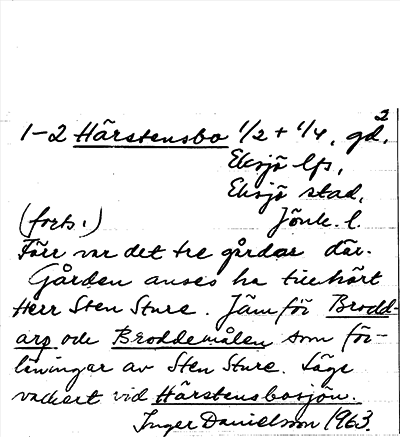 2
1-2 Härstensbo 1/2 + 1/4, gd.
Eksjö lfs,
Eksjö stad,
(forts.) Jönk. l.
Förr var det tre gårdar där.
Gården anses ha tillhört
Herr Sten Sture. Jämför Brodd-
arp och Broddemålen som för-
läningar av Sten Sture. Läge
vackert vid Härstensbosjön.
Inger Danielsson 1963.